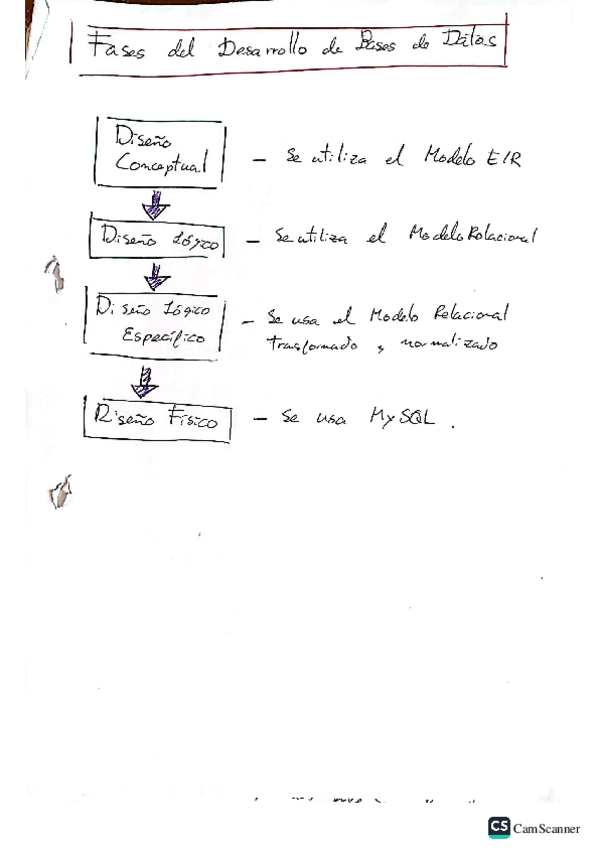 Fases del Desarrollo de Bases de Datos
Diseño
Conceptual
– Se utiliza el Modelo E/R
Diseño Lógico
– Se utiliza el Modelo Relacional
Diseño Lógico
Específico
– Se usa el Modelo Relacional
transformado y normalizado
Diseño Físico
– Se usa MySQL.
CS CamScanner